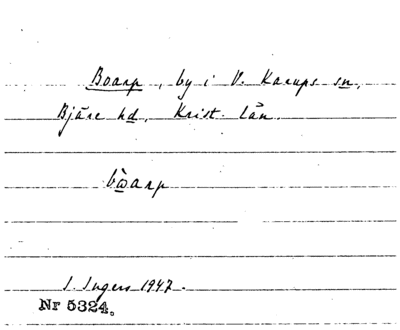 Boarp, by i V. Karups sn,
Bjäre hd. Krist. län.
bẁarp
I. Ingers 1947.
Nr 5324.